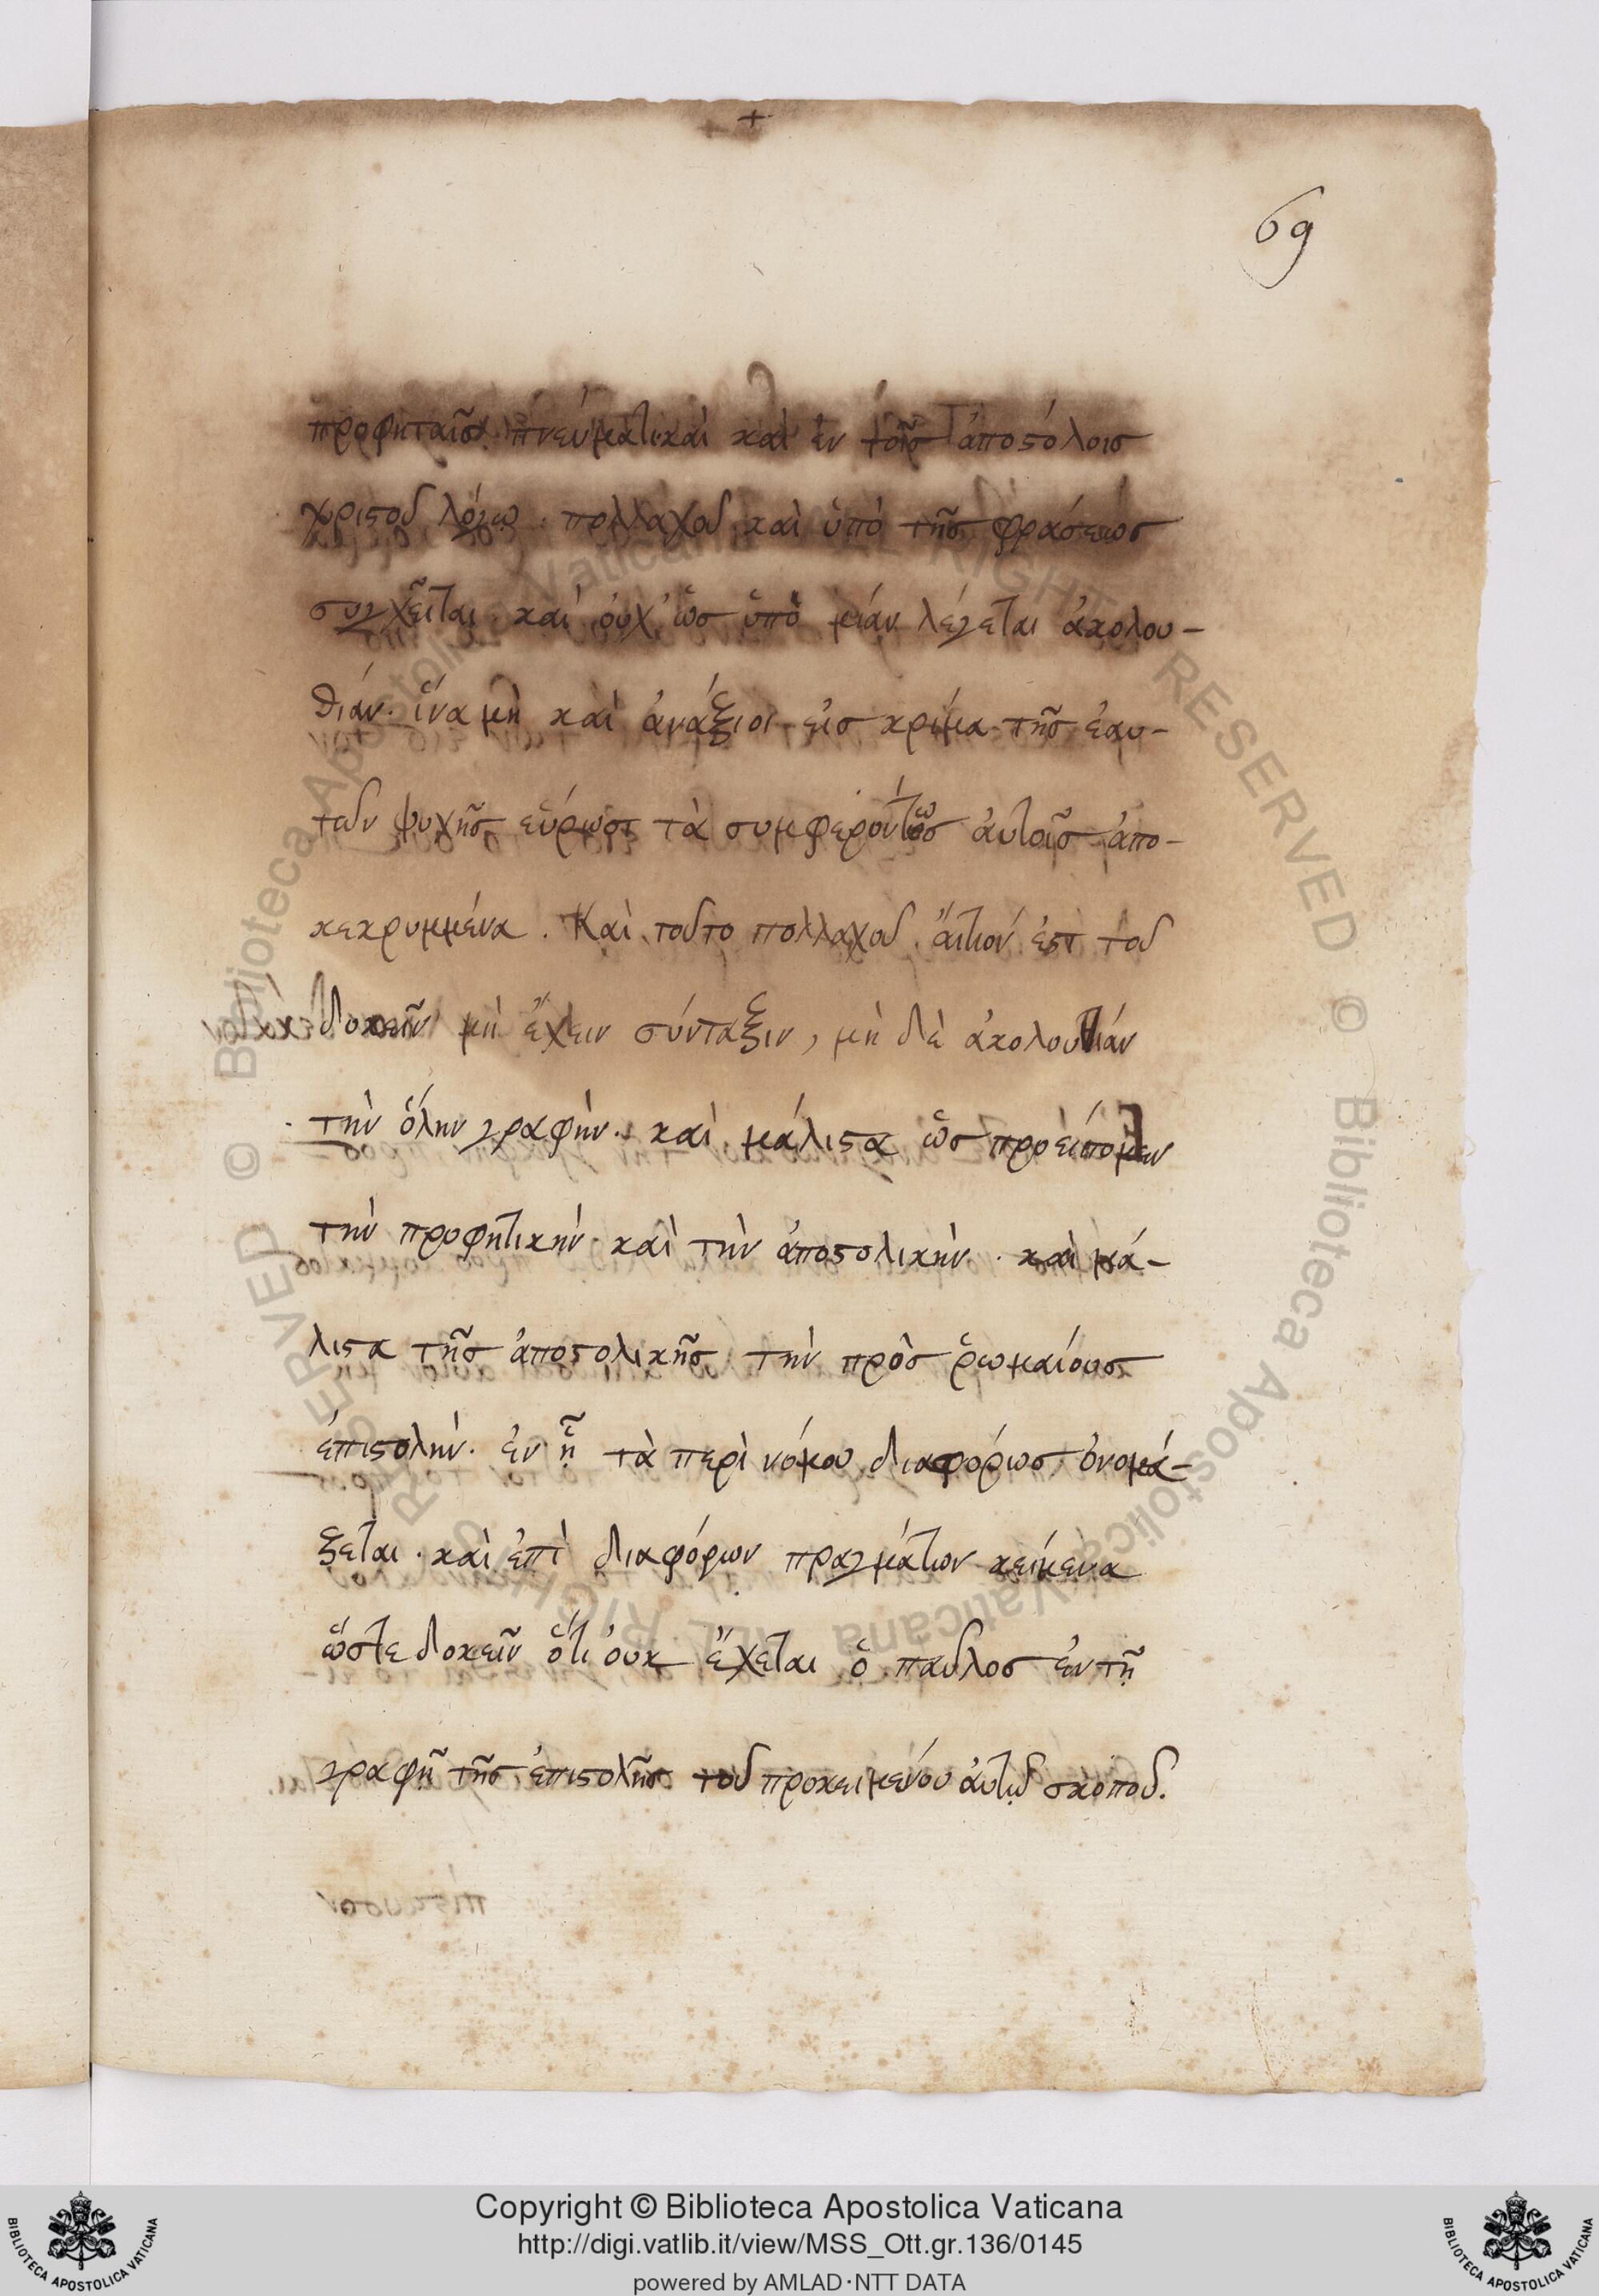 69
προφηταῖς πνεύματι καὶ καὶ ἐν τοῖς ἀποστόλοις
χριστοῦ λόγῳ. πολλαχοῦ καὶ ὑπὸ τῆς φράσεως
συγχεῖται. καὶ οὐχ' ὡς ὑπὸ μίαν λέγεται ἀκολου-
θίαν. ἵνα μὴ καὶ ἀνάξιοι εἰς κρίμα τῆς ἑαυ-
τῶν ψυχῆς εὕρωσι τὰ συμφερόντως αὐτοῖς ἀπο-
κεκρυμμένα. Καὶ τοῦτο πολλαχοῦ αἴτιόν ἐστι τοῦ
δοκεῖν μὴ ἔχειν σύνταξιν, μὴ δὲ ἀκολουθίαν
τὴν ὅλην γραφὴν. καὶ μάλιστα ὡς προείπομεν
τὴν προφητικήν. καὶ τὴν ἀποστολικὴν. καὶ μά-
λιστα τῆς ἀποστολικῆς τὴν πρὸς ῥωμαίους
ἐπιστολήν. ἐν ᾗ τὰ περὶ νόμου διαφόρως ὀνομά-
ξεται. καὶ ἐπὶ διαφόρων πραγμάτων κείμενα
ὥστε δοκεῖν ὅτι οὐκ ἔχεται ὁ παῦλος ἐν τῇ
γραφῇ τῆς ἐπιστολῆς τοῦ προκειμένου αὐτῷ σκόπου.
Copyright © Biblioteca Apostolica Vaticana
http://digi.vatlib.it/view/MSS_Ott.gr.136/0145
powered by AMLAD·NTT DATA
BIBLIOTECA APOSTOLICA VATICANA
BIBLIOTECA APOSTOLICA VATICANA